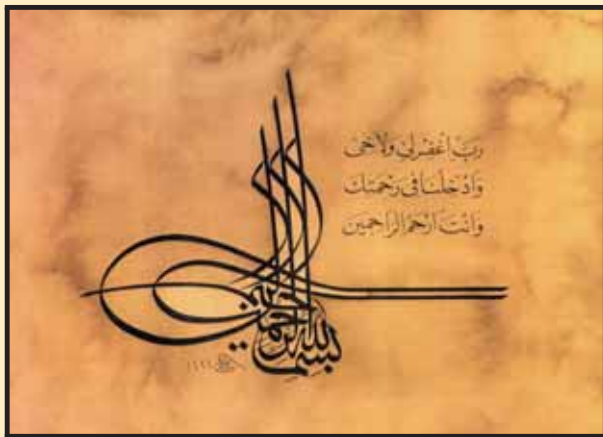 رَبِّ اغْفِرْلِي وَلِاَخِى
وَاَدْخِلْنَا فِى رَحْمَتِكَ
وَاَنْتَ اَرْحَمُ الرَّاحِمِين
بسم الله الرحمن الرحيم